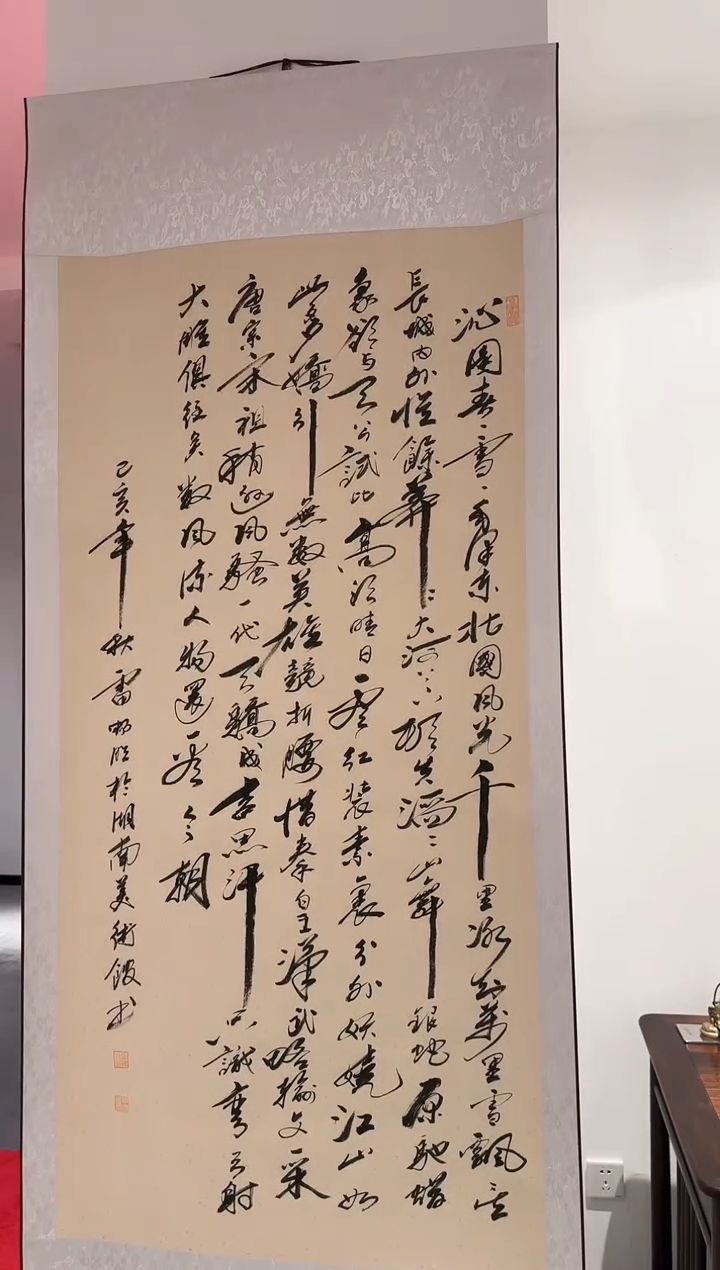 沁園春·雪·毛澤東北國風光千里冰封萬里雪飄望
長城内外惟餘莽〻大河上下頓失滔〻山舞銀蛇原馳蠟
象欲與天公試比高須晴日看紅裝素裹分外妖嬈江山如
此多嬌引無數英雄競折腰惜秦皇漢武略輸文采
唐宗宋祖稍遜風騷一代天驕成吉思汗只識彎弓射
大雕俱往矣數風流人物還看今朝
己亥年秋雷於湖南美術館書